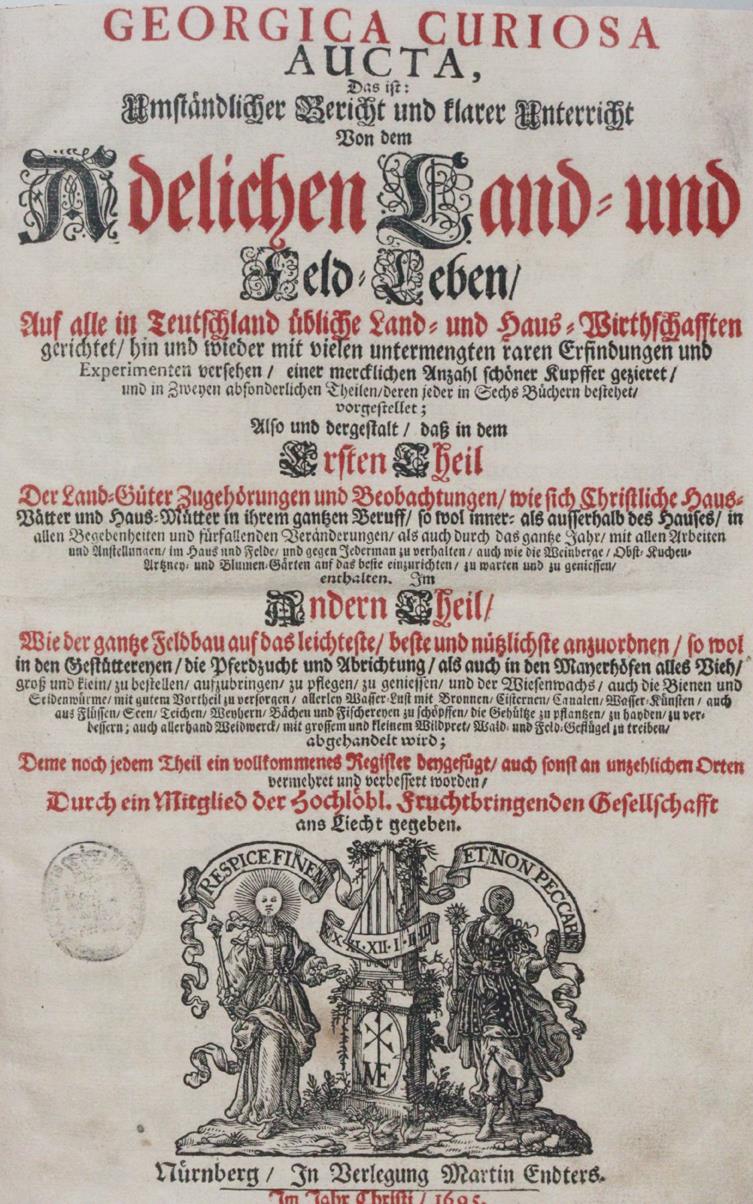 GEORGICA CURIOSA
AUCTA,
Das ist:
Umständlicher Bericht und klarer Unterricht
Von dem
Adelichen Land- und
Feld-Leben/
Auf alle in Teutschland übliche Land- und Haus-Wirthschafften
gerichtet/ hin und wieder mit vielen untermengten raren Erfindungen und
Experimenten versehen/ einer mercklichen Anzahl schöner Kupffer gezieret/
und in Zweyen absonderlichen Theilen/deren jeder in Sechs Büchern bestehet/
vorgestellet;
Also und dergestalt/ daß in dem
Ersten Theil
Der Land-Güter Zugehörungen und Beobachtungen/ wie sich Christliche Haus-
Vätter und Haus-Mütter in ihrem gantzen Beruff/ so wol inner- als ausserhalb des Hauses/ in
allen Begebenheiten und fürfallenden Veränderungen/ als auch durch das gantze Jahr/ mit allen Arbeiten
und Anstellungen/ im Haus und Felde/ und gegen Jederman zu verhalten/ auch wie die Weinberge/ Obst- Kuchen-
Artzney- und Blumen-Gärten auf das beste einzurichten/ zu warten und zu geniessen/
enthalten. Im
Andern Theil/
Wie der gantze Feldbau auf das leichteste/ beste und nützlichste anzuordnen/ so wol
in den Gestüttereyen/ die Pferdzucht und Abrichtung/ als auch in den Mayerhöfen alles Vieh/
groß und klein/ zu bestellen/ aufzubringen/ zu pflegen/ zu geniessen/ und der Wiesenwachs/ auch die Bienen und
Seidenwürme/ mit gutem Vortheil zu versorgen/ allerley Wasser-Lust mit Bronnen/ Cisternen/ Canalen/ Wasser-Künsten/ auch
aus Flüssen/ Seen/ Teichen/ Weyhern/ Bächen und Fischereyen zu schöpffen/ die Gehültze zu pflantzen/ zu hayden/ zu ver-
bessern; auch allerhand Weidwerck/ mit grossem und kleinem Wildpret/ Wald- und Feld-Geflügel zu treiben/
abgehandelt wird;
Deme noch jedem Theil ein vollkommenes Register beygefügt/ auch sonst an unzehlichen Orten
vermehret und verbessert worden/
Durch ein Mitglied der Hochlöbl. Fruchtbringenden Gesellschafft
ans Liecht gegeben.
RESPICE FINEM
ET NON PECCAB
X·XI·XII·I·II·III
ME
Nürnberg/ In Verlegung Martin Endters.
Im Jahr Christi/ 1695.